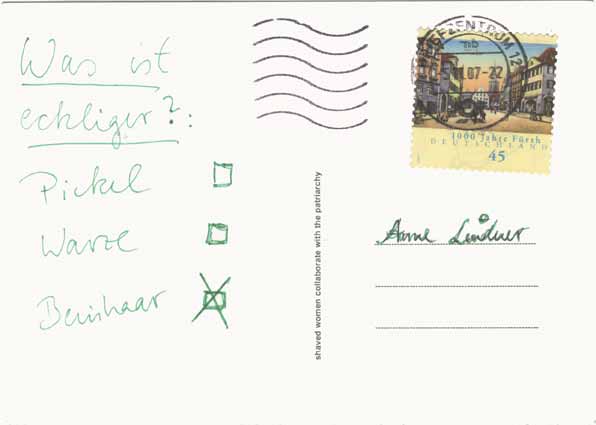 Was ist
eckliger?:
Pickel
Warze
Beinhaar
shaved women collaborate with the patriarchy
BRIEFZENTRUM 12
07-22
1000 Jahre Fürth
DEUTSCHLAND
45
Anne Lindner